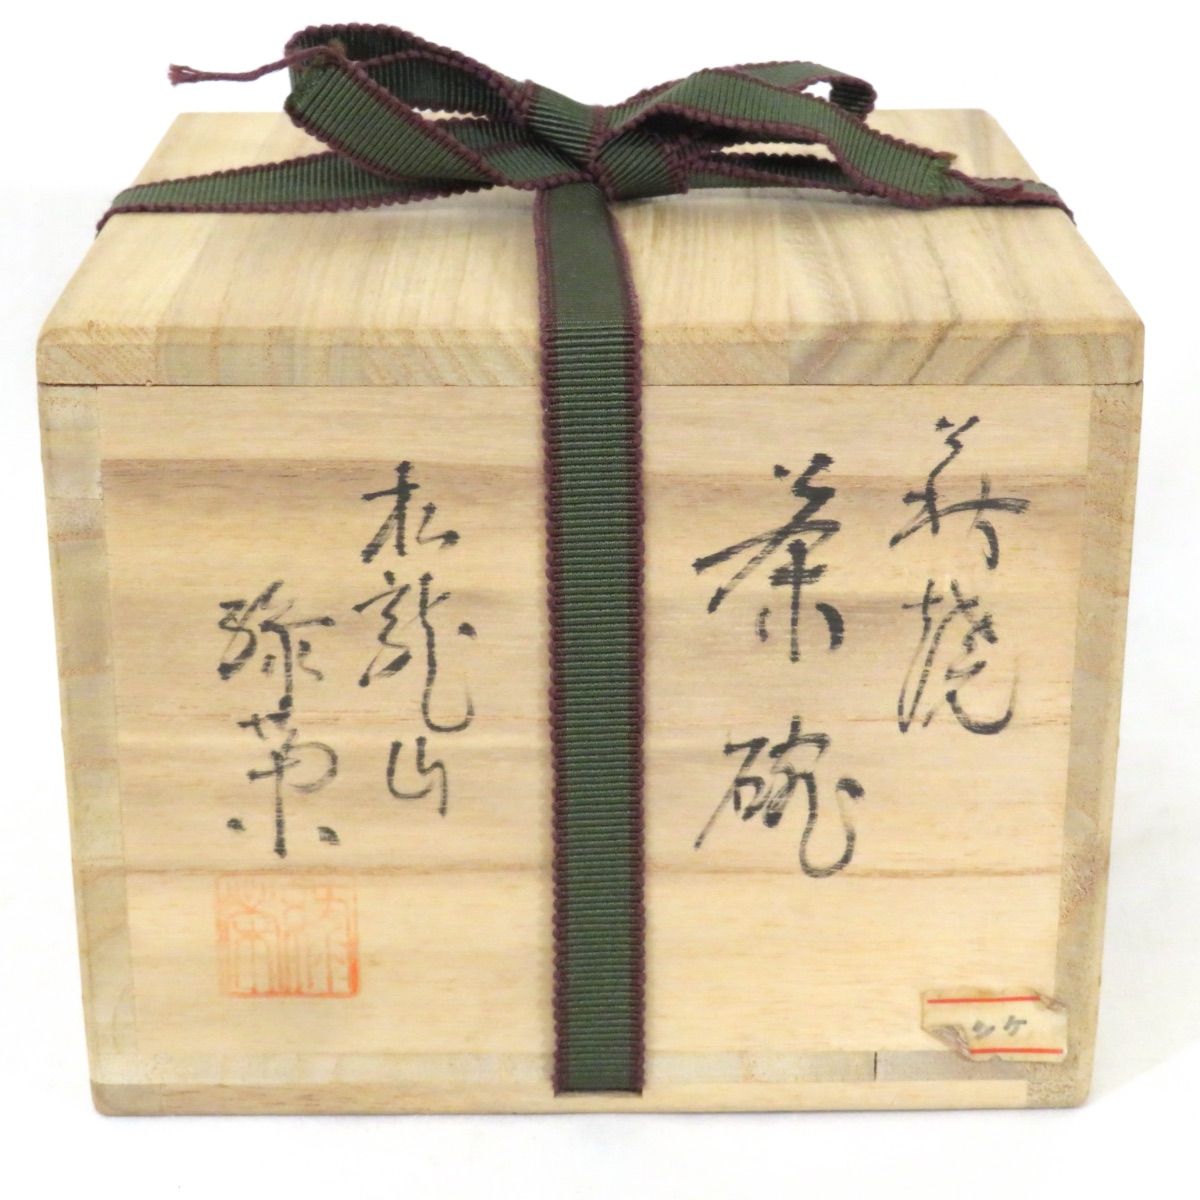 萩焼
茶碗
松龍山
弥栄